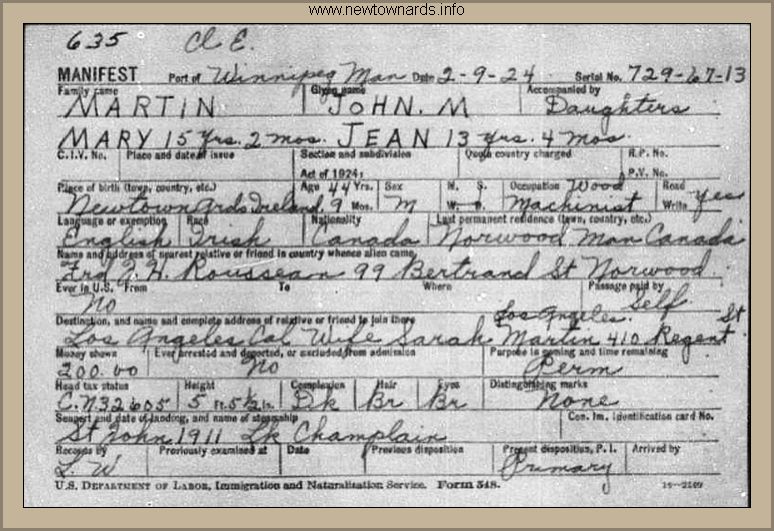 www.newtownards.info
635 Cl E.
MANIFEST Port of Winnipeg Man Date 2-9-24 Serial No. 729-67-13
Family name Given name Accompanied by
MARTIN JOHN. M Daughters
MARY 15 Yrs. 2 mos. JEAN 13 yrs. 4 mos.
C.I.V. No. Place and date of issue Section and subdivision Quota country charged R.P. No.
Act of 1924: P.V. No.
Place of birth (town, country, etc.) Age 44 Yrs. Sex M. S. Occupation Wood Read
Newtownards Ireland 9 Mos. M W. D. Machinist Write Yes
Language or exemption Race Nationality Last permanent residence (town, country, etc.)
English Irish Canada Norwood Man Canada
Name and address of nearest relative or friend in country whence alien came
Frd J. H. Rousseau 99 Bertrand St Norwood.
Ever in U.S. From To Where Passage paid by
No Self
Destination, and name and complete address of relative or friend to join there Los Angeles. St
Los Angeles Cal Wife Sarah Martin 410 Regent
Money shown Ever arrested and deported, or excluded from admission Purpose in coming and time remaining
200.00 No Perm
Head tax status Height Complexion Hair Eyes Distinguishing marks
C.N.32605 5 Ft. 5½ In. Dk Br Br None
Seaport and date of landing, and name of steamship Con. Im. Identification card No.
St John 1911 Lk Champlain
Records by Previously examined at Date Previous disposition Present disposition, P.I. Arrived by
L. W Primary
U.S. DEPARTMENT OF LABOR, Immigration and Naturalization Service. Form 548.